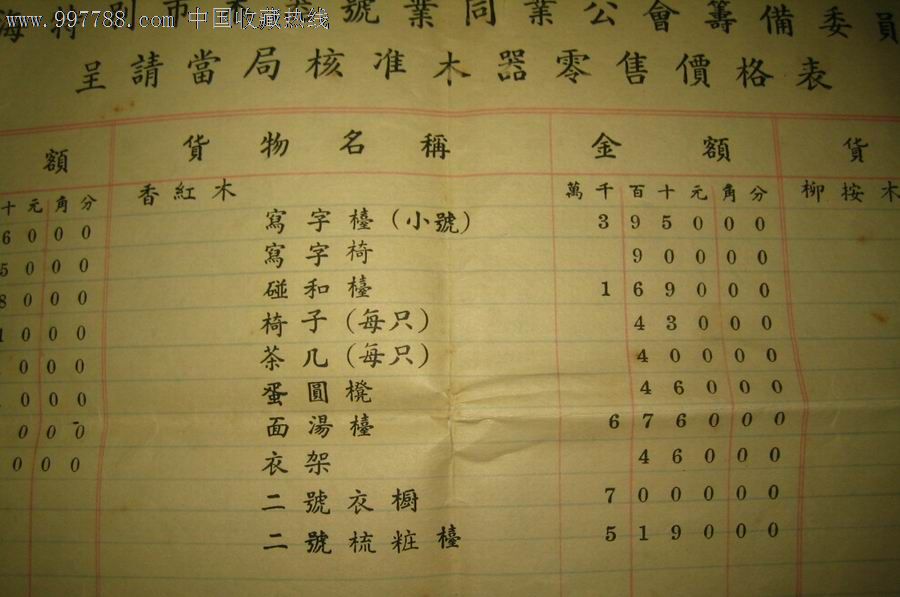 www.997788.com 中国收藏热线
海特別市 號業同業公會籌備委員
呈請當局核准木器零售價格表
額 貨物名稱 金額 貨
十元角分 香紅木 萬千百十元角分 柳桉木
6000 寫字檯(小號) 395000
5000 寫字椅 90000
8000 碰和檯 169000
1000 椅子(每只) 43000
000 茶几(每只) 40000
000 蛋圓櫈 46000
000 面湯檯 676000
000 衣架 46000
二號衣櫥 700000
二號梳粧檯 519000